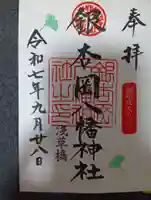 奉拝
銀杏岡八幡神社
浅草橋
令和七年九月廿八日